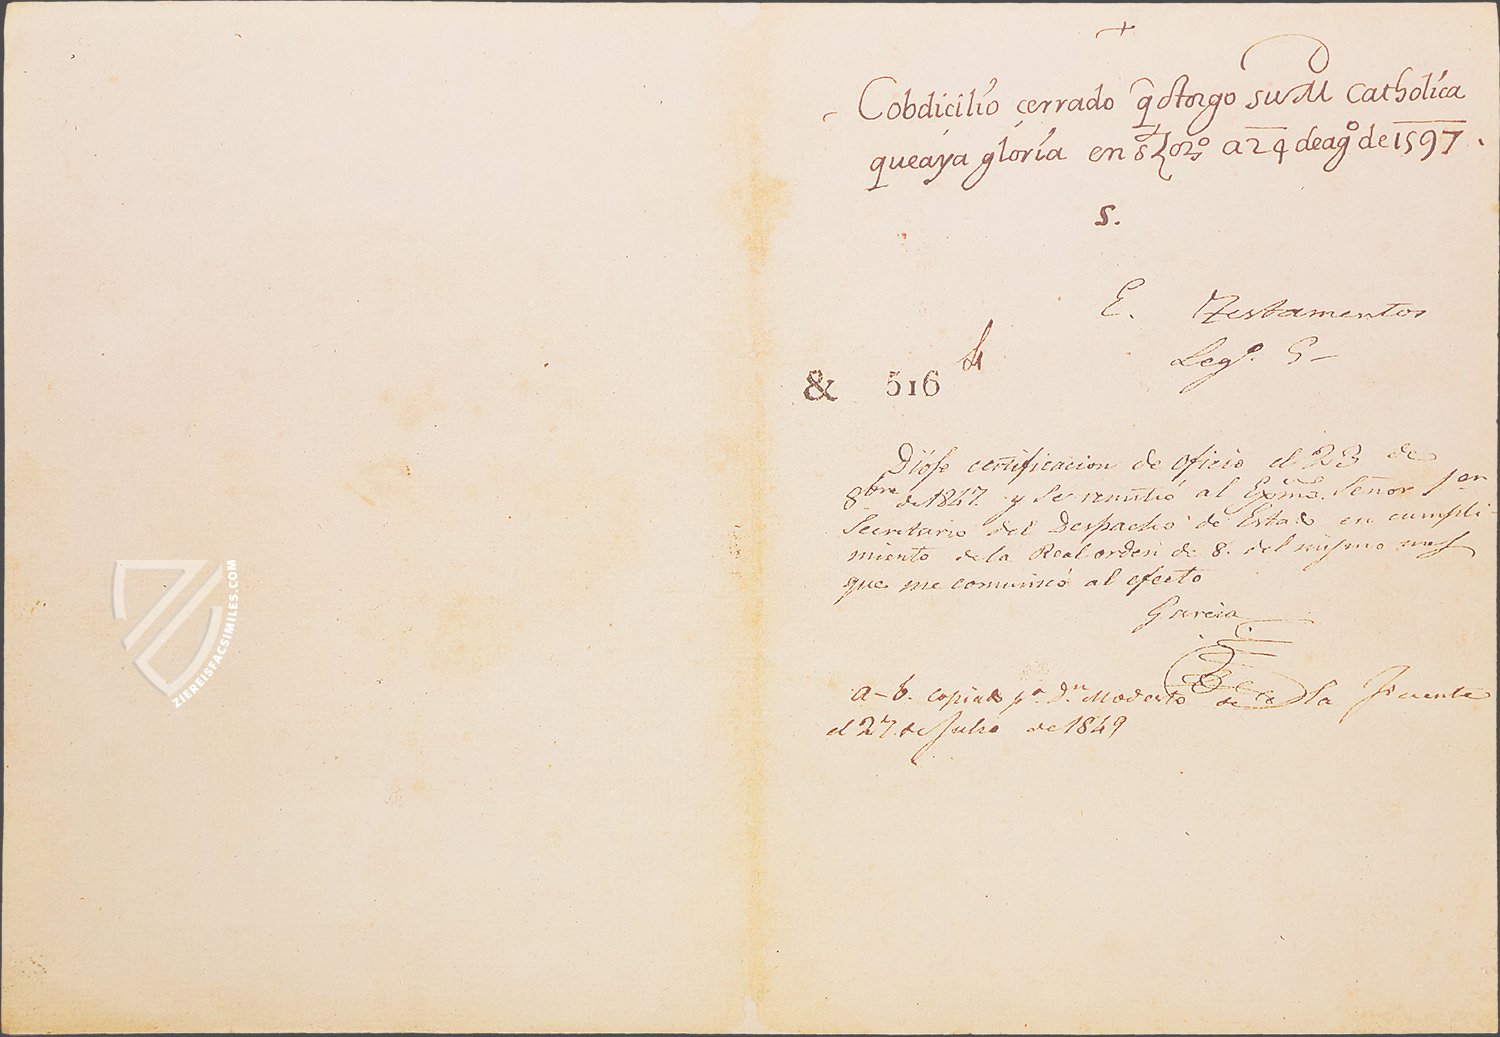 +
Cobdicilio cerrado q̃ otorgo su M Catholica
que aya gloria en s.t Lor.o a 24 de ag.o de 1597.
S.
E. Testamentos
Leg.o 5
& 516
Diose certificacion de oficio el 23 de
8bre de 1847 y se remitió al Exmo. Señor 1er
Secretario del Despacho de Estado en cumpli-
miento de la Real orden de 8. del mismo mes
que me comunicó al efecto
Garcia
a-b. copiado pa. Dn. Modesto de la Fuente
el 27 de Julio de 1849
ZIEREISFACSIMILES.COM